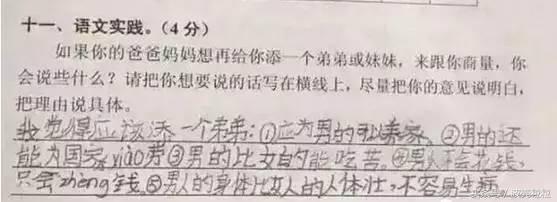 十一、语文实践。（4分）
如果你的爸爸妈妈想再给你添一个弟弟或妹妹，来跟你商量，你
会说些什么？请把你想要说的话写在横线上，尽量把你的意见说明白，
把理由说具体。
我觉得应该添一个弟弟：①应为男的 养家。②男的还
能为国家xiào劳③男的比女的能吃苦。④男人不会花钱，
只会zhèng钱。⑤男人的身体比女人的人体壮，不容易生病
搜狐号